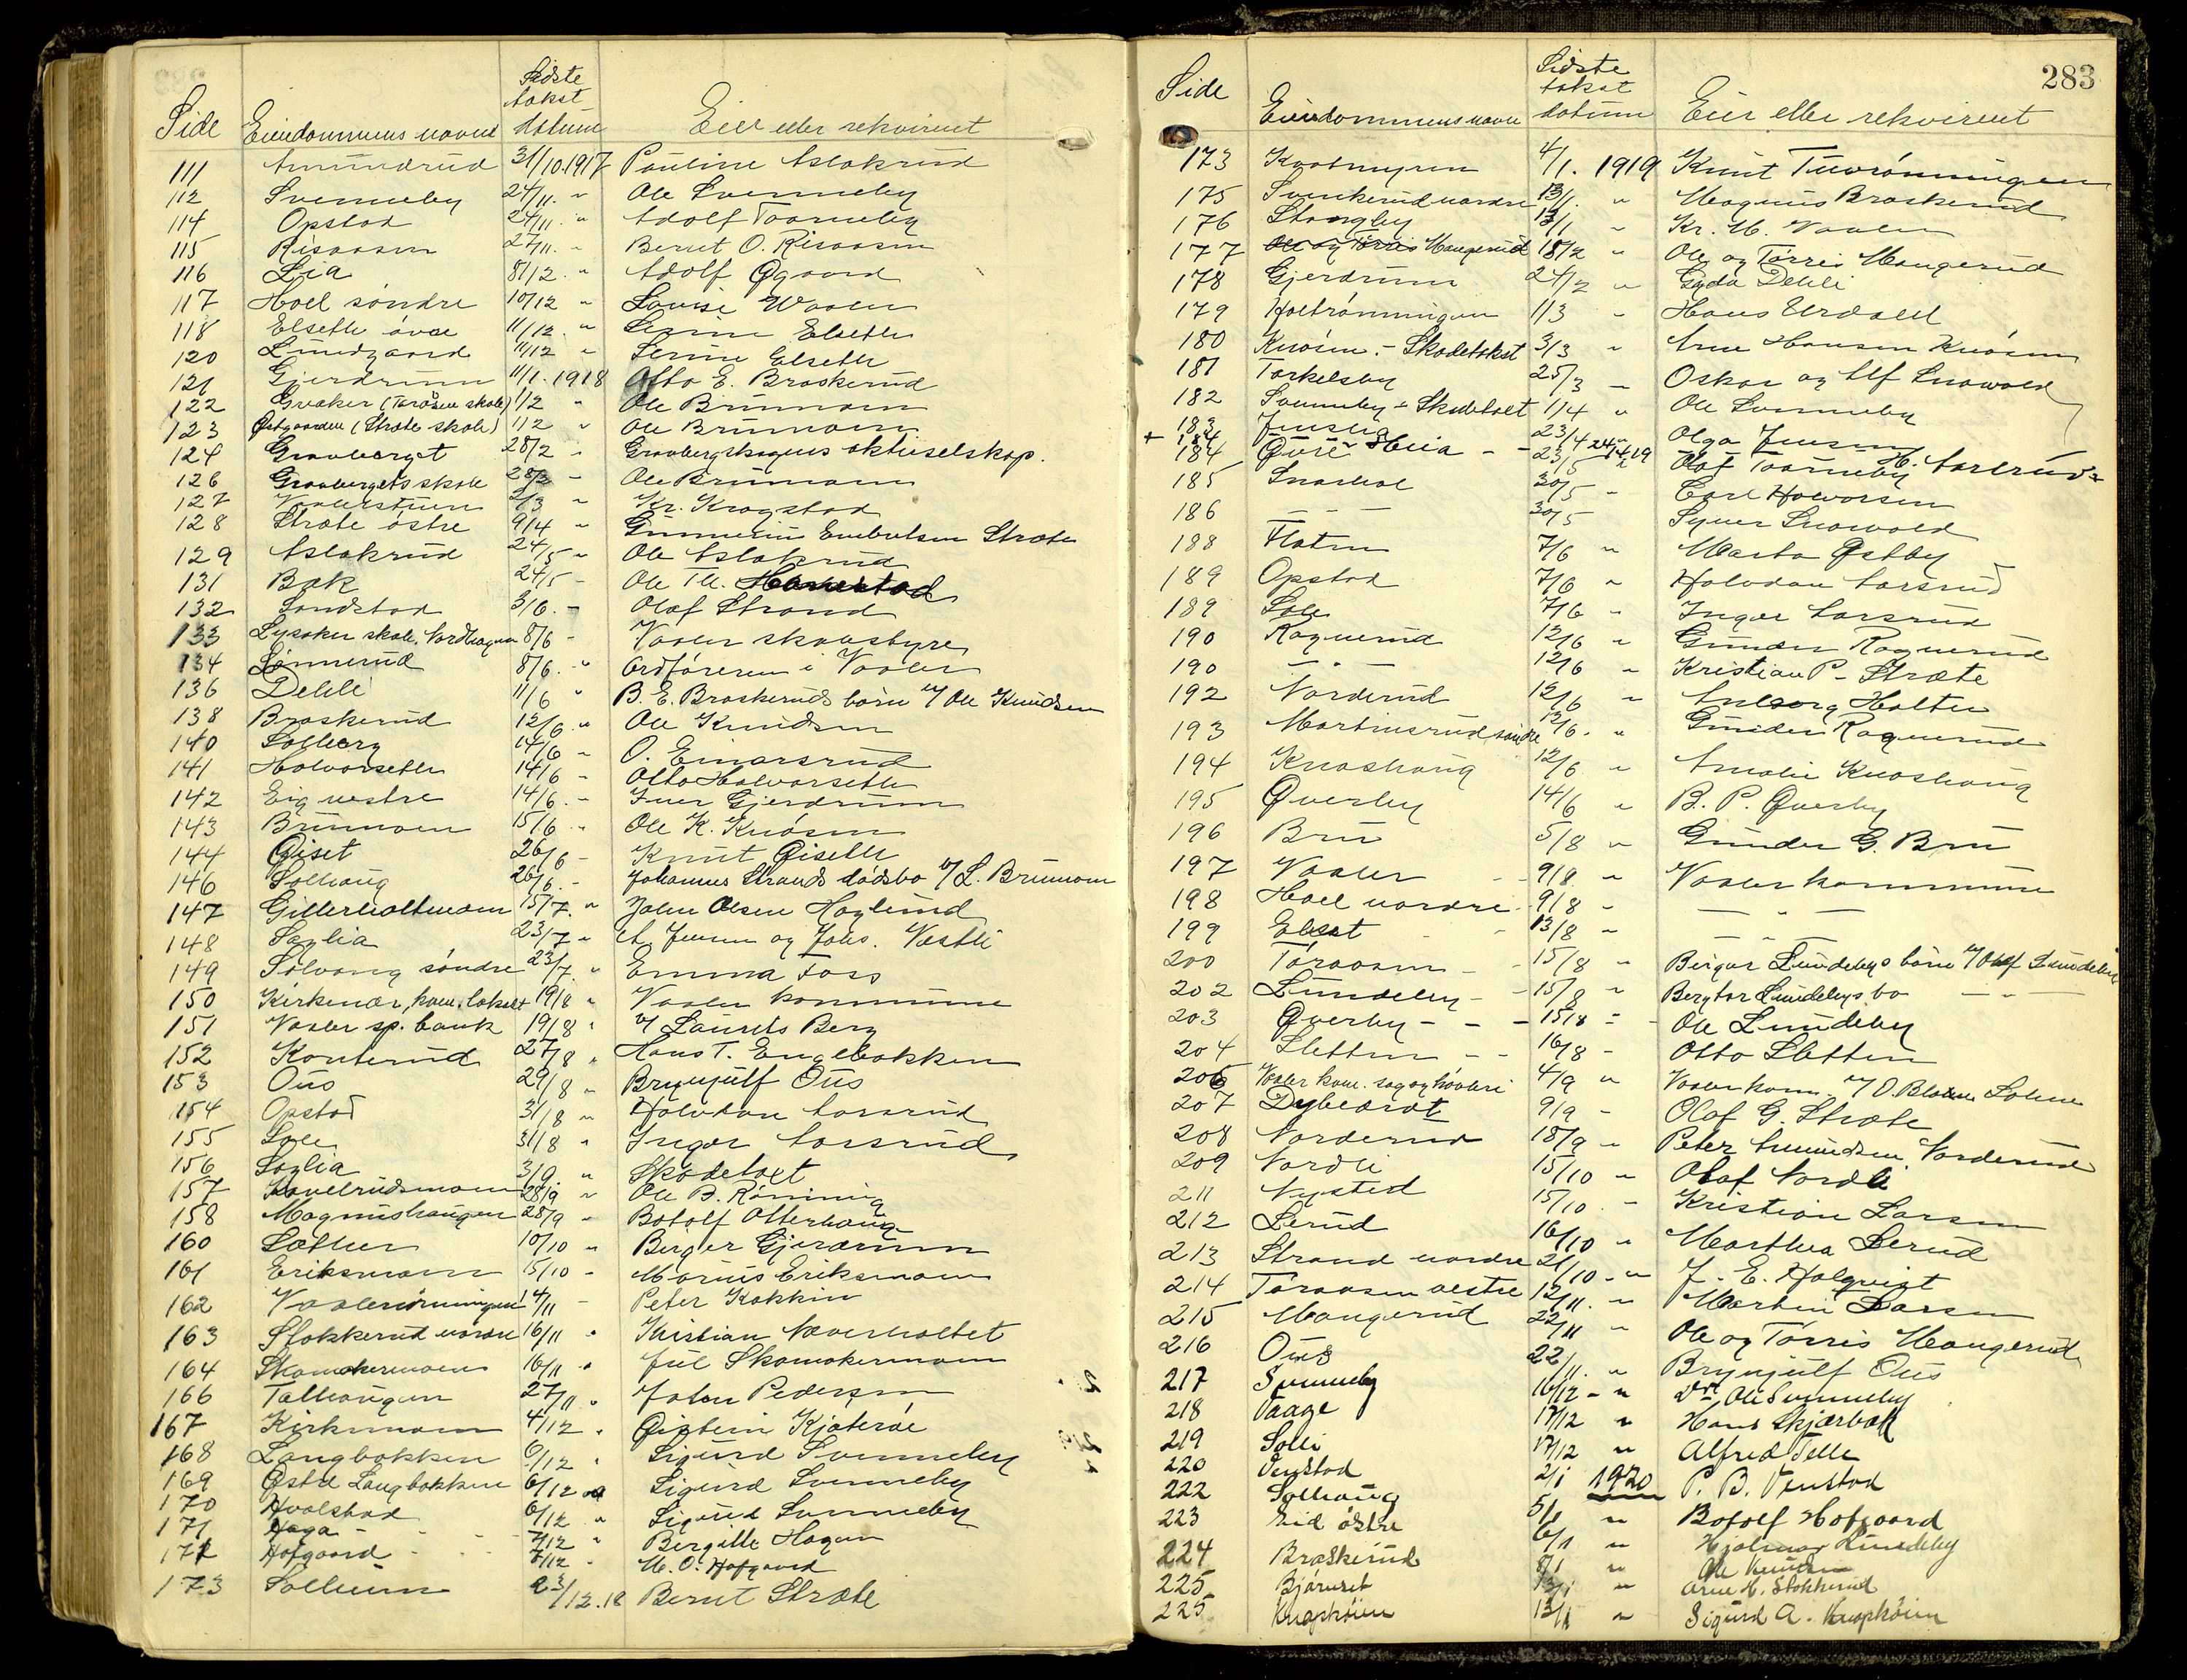 Side Eiendommens navne Sidste takst datum Eier eller rekvirent
111 Amundrud 31/10.1917 Pauline Aslakrud
112 Svenneby 24/11. " Ole Svenneby
114 Opstad 24/11. " Adolf Taarneby
115 Risaasen 27/11. " Bernt O. Risaasen
116 Lia 8/12. " Adolf Øgaard
117 Hoel söndre 10/12 " Lovise Waaler
118 Elseth övre 11/12. " Serine Elseth
120 Lundgaard 11/12 " Serine Elseth
121 Gjerdrum 11/1.1918 Otto E. Braskerud
122 Gvaker (Taråsen skole) 1/2 " Ole Brumoen
123 Østgaarden (Stræte skole) 1/2 " Ole Brumoen
124 Gravberget 28/2 " Gravbergskogens aktieselskap.
126 Gravbergets skole 28/2 - Ole Brumoen
127 Vaalerstuen 2/3 " Kr. Krogstad
128 Stræte östre 9/4 " Gunnerius Embretsen Stræte
129 Aslakrud 24/5 " Ole Aslakrud
131 Bak 24/5 - Ole Th.
132 Sandstad 3/6. - Olaf Strand
133 Lysaker skole, Nordhagen 8/6 - Vaaler skolestyre
134 Lønnerud 8/6. " Ordföreren i Vaaler
136 Dehli 11/6 " B. E. Braskeruds börn v/ Ole Knudsen
138 Braskerud 12/6 " Ole Knudsen
140 Solberg 14/6 " O. Einarsrud
141 Halvorseth 14/6 - Otto Halvorseth
142 Eig vestre 14/6. - Iver Gjerdrum
143 Brumoen 15/6 " Ole K. Knösen
144 Øiset 26/6 - Knut Øiseth
146 Solhaug 26/6. - Johannes Strands dödsbo v/ L. Brumoen
147 Gitterholtmoen 15/7. " Johan Olsen Haglund
148 Saglia 23/7 " A. Jensen og Johs. Vestli
149 Solvang söndre 23/7. " Emma Foss
150 Kirkenær, kom. lokale 19/8 " Vaaler kommune
151 Vaaler sp. bank 19/8 " v/ Laurits Berg
152 Konterud 27/8 " Hans T. Engebakken
153 Ous 29/8 " Brynjulf Ous
154 Opstad 31/8 " Halvdan Aarsrud
155 Sole 31/8 " Ingar Aarsrud
156 Saglia 3/9. " Skadetaxt
157 Havelrudsmoen 28/9 " Ole B. Rönning
158 Magnushaugen 28/9 " Botolf Otterhaug
160 Sæther 10/10 " Birger Gjerdrum
161 Eriksmoen 15/10 - Marius Eriksmoen
162 Vaalerrönningen 14/11 - Peter Kokkin
163 Stokkerud nordre 16/11 " Kristian Næverholtet
164 Skomakermoen 16/11 " Jul Skomakermoen
166 Tallhaugen 27/11 " Johan Pedersen
167 Kirkemoen 4/12 " Øistein Kjøteröe
168 Langbakken 6/12 " Sigurd Svenneby
169 Østre Langbakken 6/12 " Sigurd Svenneby
170 Kvalstad 6/12 " Sigurd Svenneby
171 Haga - - - 7/12 " Bergitte Hagen
172 Hofgaard - - 7/12 - M. O. Hofgaard
173 Solheim 23/12.18 Bernt Stræte
283
Side Eiendommens navn Sidste takst datum Eier eller rekvirent
173 Kvatmyren 4/1. 1919 Knut Tuvrönningen
175 Svenkerud nordre 13/1. " Magnus Braskerud
176 Stangby 13/1 " Kr. M. Vaaler
177 Ole og Törris Haugerud 18/2 " Ole og Törris Haugerud
178 Gjerdrum 24/2 " Gyda Dehli
179 Holtrönningen 1/3 - Hans Urdahl
180 Knösen. - Skadetakst 3/3 " Arne Hansen Knösen
181 Torkelsby 25/3 - Oskar og Alf Snavold
182 Svenneby - Skadetaxt 1/4 " Ole Svenneby
183 23/4 - Olga Jensen
+ 184 Heia - - 24/4 19 H. Aarsrud
184 Øvre 23/5 " Olaf Taarneby
185 Snarhol 30/5 - Carl Halvorsen
186 — — — 30/5 Syver Snavold
188 Flaten 7/6 " Marta Østby
189 Opstad 7/6 " Halvdan Aarsrud
189 Sole 7/6 " Ingar Aarsrud
190 Ragnerud 12/6 " Gunder Ragnerud
190 — " — 12/6 " Kristian P. Stræte
192 Norderud 12/6 " Anborg Holter
193 Martinsrud söndre 12/6. " Gunder Ragnerud
194 Knashaug 12/6 " Amalie Knashaug
195 Øverby 14/6 " B. P. Øverby
196 Bru 5/8 " Gunder G. Bru
197 Vaaler - - 9/8. " Vaaler kommune
198 Hoel nordre - 9/8 " — " —
199 Elset - - 13/8 " — " —
200 Töraasen - - 15/8 " Birger Lundebys börn v/ Olaf Lundeby
202 Lundeby - - 15/8 " Bergtor Lundebys bo — " —
203 Øverby - - - 15/8 = - Ole Lundeby
204 Sletten - - 16/8 - Otto Sletten
206 Vaaler kom. sag og høvleri 4/9 " Vaaler kom. v/ O. Solum
207 Dybedrat 9/9 - Olaf G. Stræte
208 Norderud 18/9 " Peter Amundsen Norderud
209 Nordli 15/10 " Olaf Nordli
211 Nysted 15/10. - Kristian Larsen
212 Lerud 16/10 " Marthea Lerud
213 Strand nordre 21/10 - " J. E. Holqvist
214 Töraasen vestre 12/11. " Martin Larsen
215 Haugerud 22/11 " Ole og Törris Haugerud
216 Ous 22/11. " Brynjulf Ous
217 Svenneby 16/12 - " Ole Svenneby
218 Vaage 17/12 " Hans Skjærbæk
219 Solli 17/12 " Alfred Telle
220 Venstad 2/1 1920 P. B. Venstad
222 Solhaug 5/1 " Botolf Hofgaard
223 Eid östre 6/1 " Hjalmar Lundeby
224 Braskerud 8/1 " Ole Knutsen
225 Bjørneset 13/1 " Arne H. Stokkerud
225 Knapköien 13/1 " Sigurd A. Knapköien